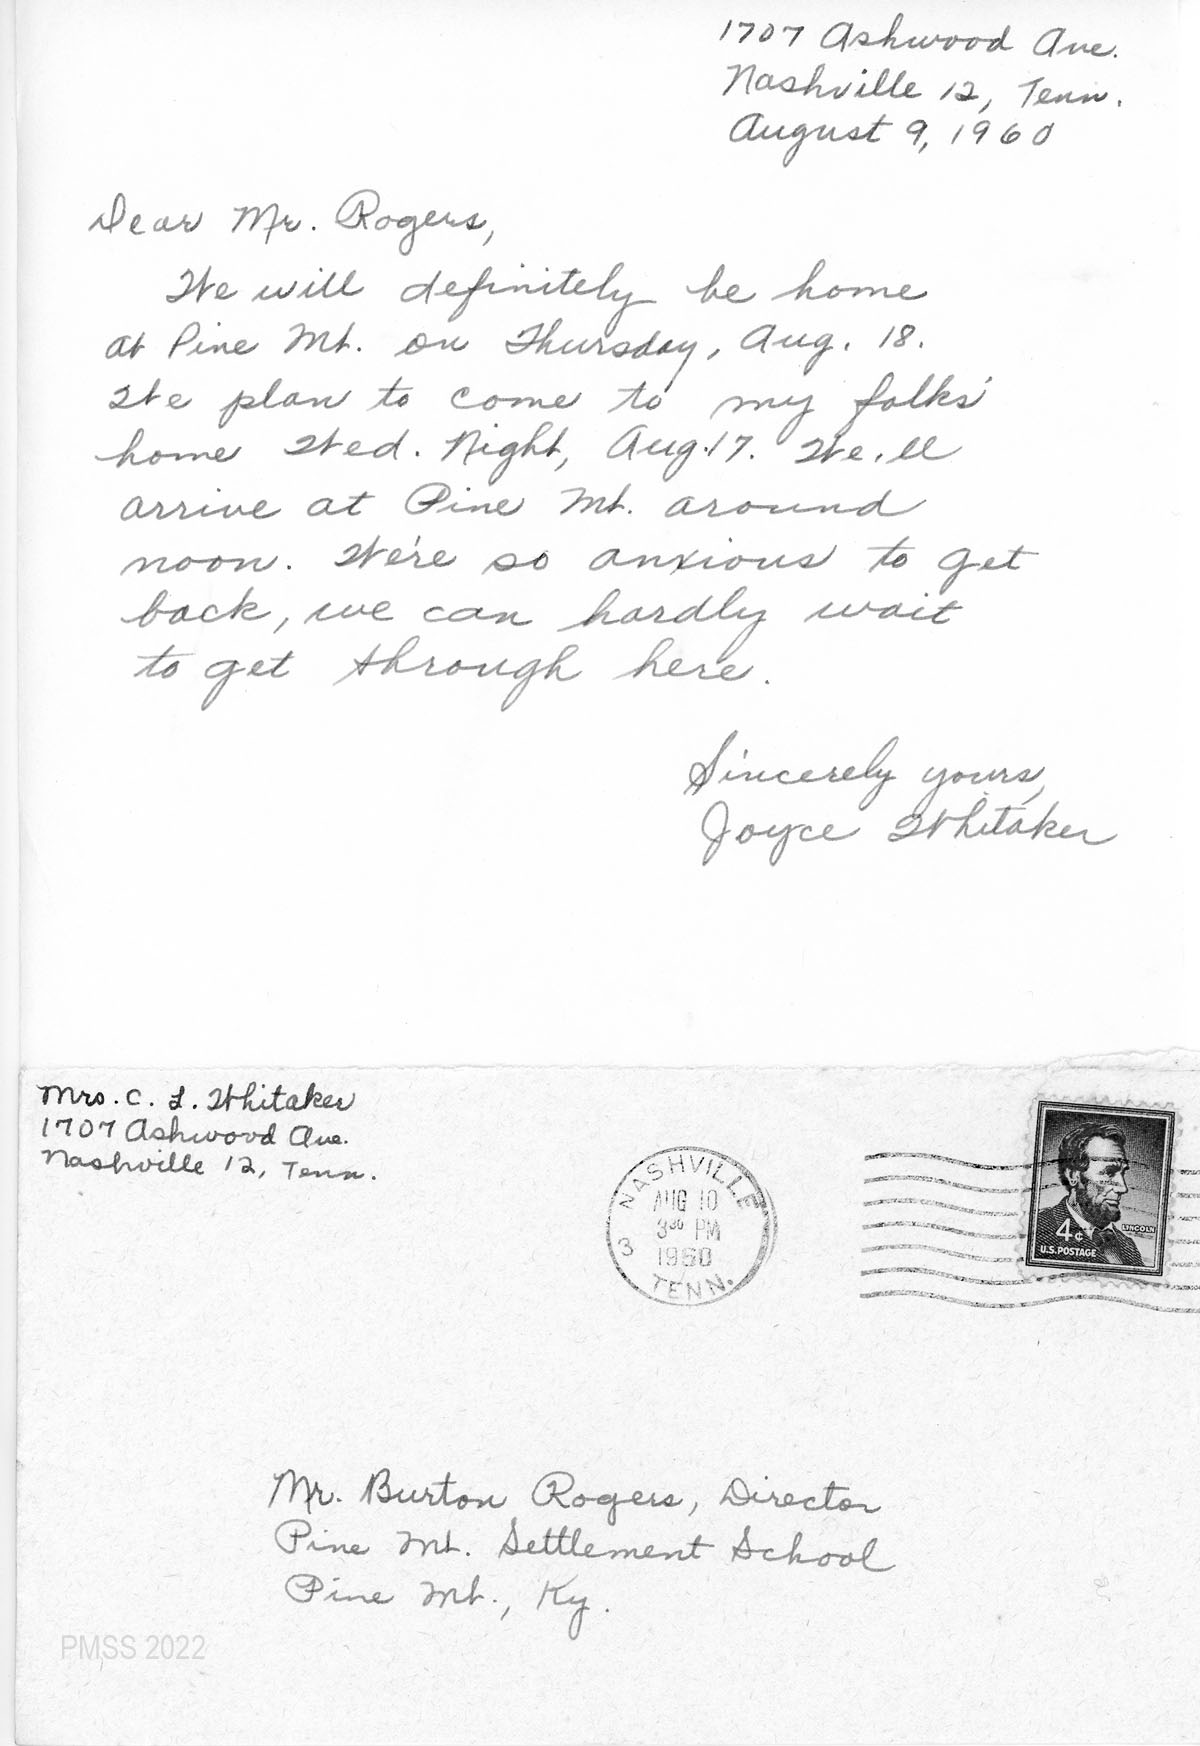 1707 Ashwood Ave.
Nashville 12, Tenn.
August 9, 1960
Dear Mr. Rogers,
We will definitely be home
at Pine Mt. on Thursday, Aug. 18.
We plan to come to my folks'
home Wed. Night, Aug. 17. We'll
arrive at Pine Mt. around
noon. We're so anxious to get
back, we can hardly wait
to get through here.
Sincerely yours,
Joyce Whitaker
Mrs. C. L. Whitaker
1707 Ashwood Ave.
Nashville 12, Tenn.
NASHVILLE
AUG 10
3 30 PM
1960
3
TENN.
LINCOLN
4¢
U.S. POSTAGE
Mr. Burton Rogers, Director
Pine Mt. Settlement School
Pine Mt., Ky.
PMSS 2022